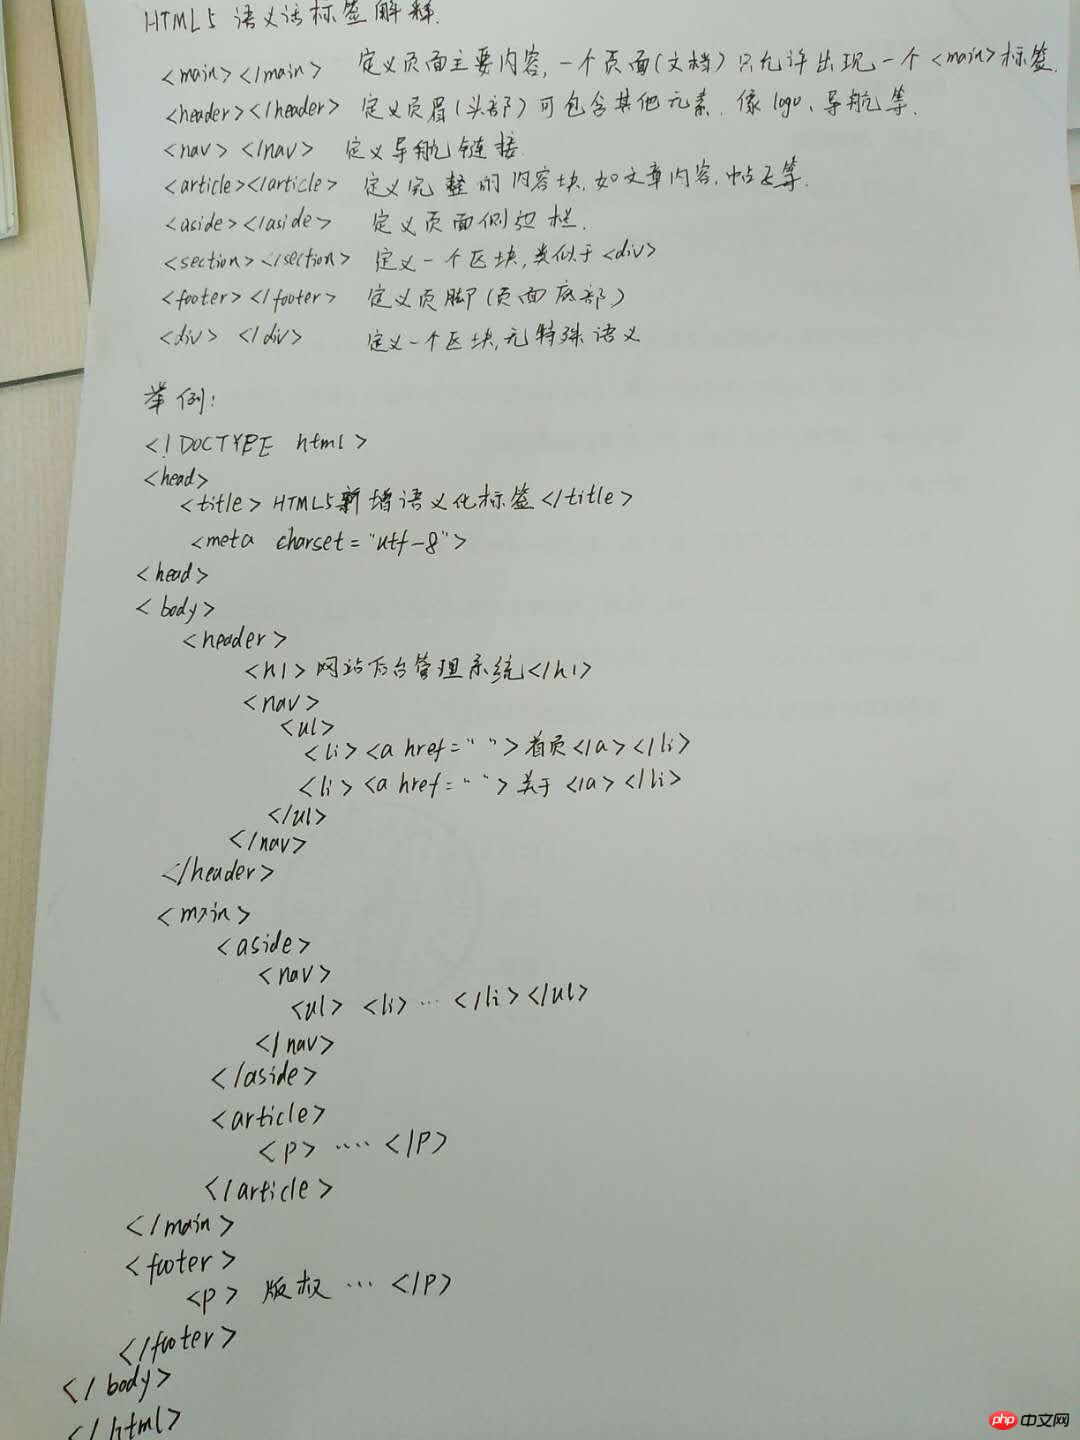 HTML5 语义话标签解释.
<main></main> 定义页面主要内容,一个页面(文档)只允许出现一个<main>标签.
<header></header> 定义页眉(头部)可包含其他元素.像logo、导航等.
<nav></nav> 定义导航链接.
<article></article> 定义完整的内容块,如文章内容,帖子等.
<aside></aside> 定义页面侧边栏.
<section></section> 定义一个区块,类似于<div>
<footer></footer> 定义页脚(页面底部)
<div> </div> 定义一个区块,无特殊语义
举例:
<!DOCTYPE html>
<head>
<title>HTML5新增语义化标签</title>
<meta charset="utf-8">
<head>
<body>
<header>
<h1>网站后台管理系统</h1>
<nav>
<ul>
<li><a href=" ">首页</a></li>
<li><a href=" ">关于</a></li>
</ul>
</nav>
</header>
<main>
<aside>
<nav>
<ul> <li> ... </li></ul>
</nav>
</aside>
<article>
<p> .... </p>
</article>
</main>
<footer>
<p> 版权 ... </p>
</footer>
</body>
</html>
php 中文网